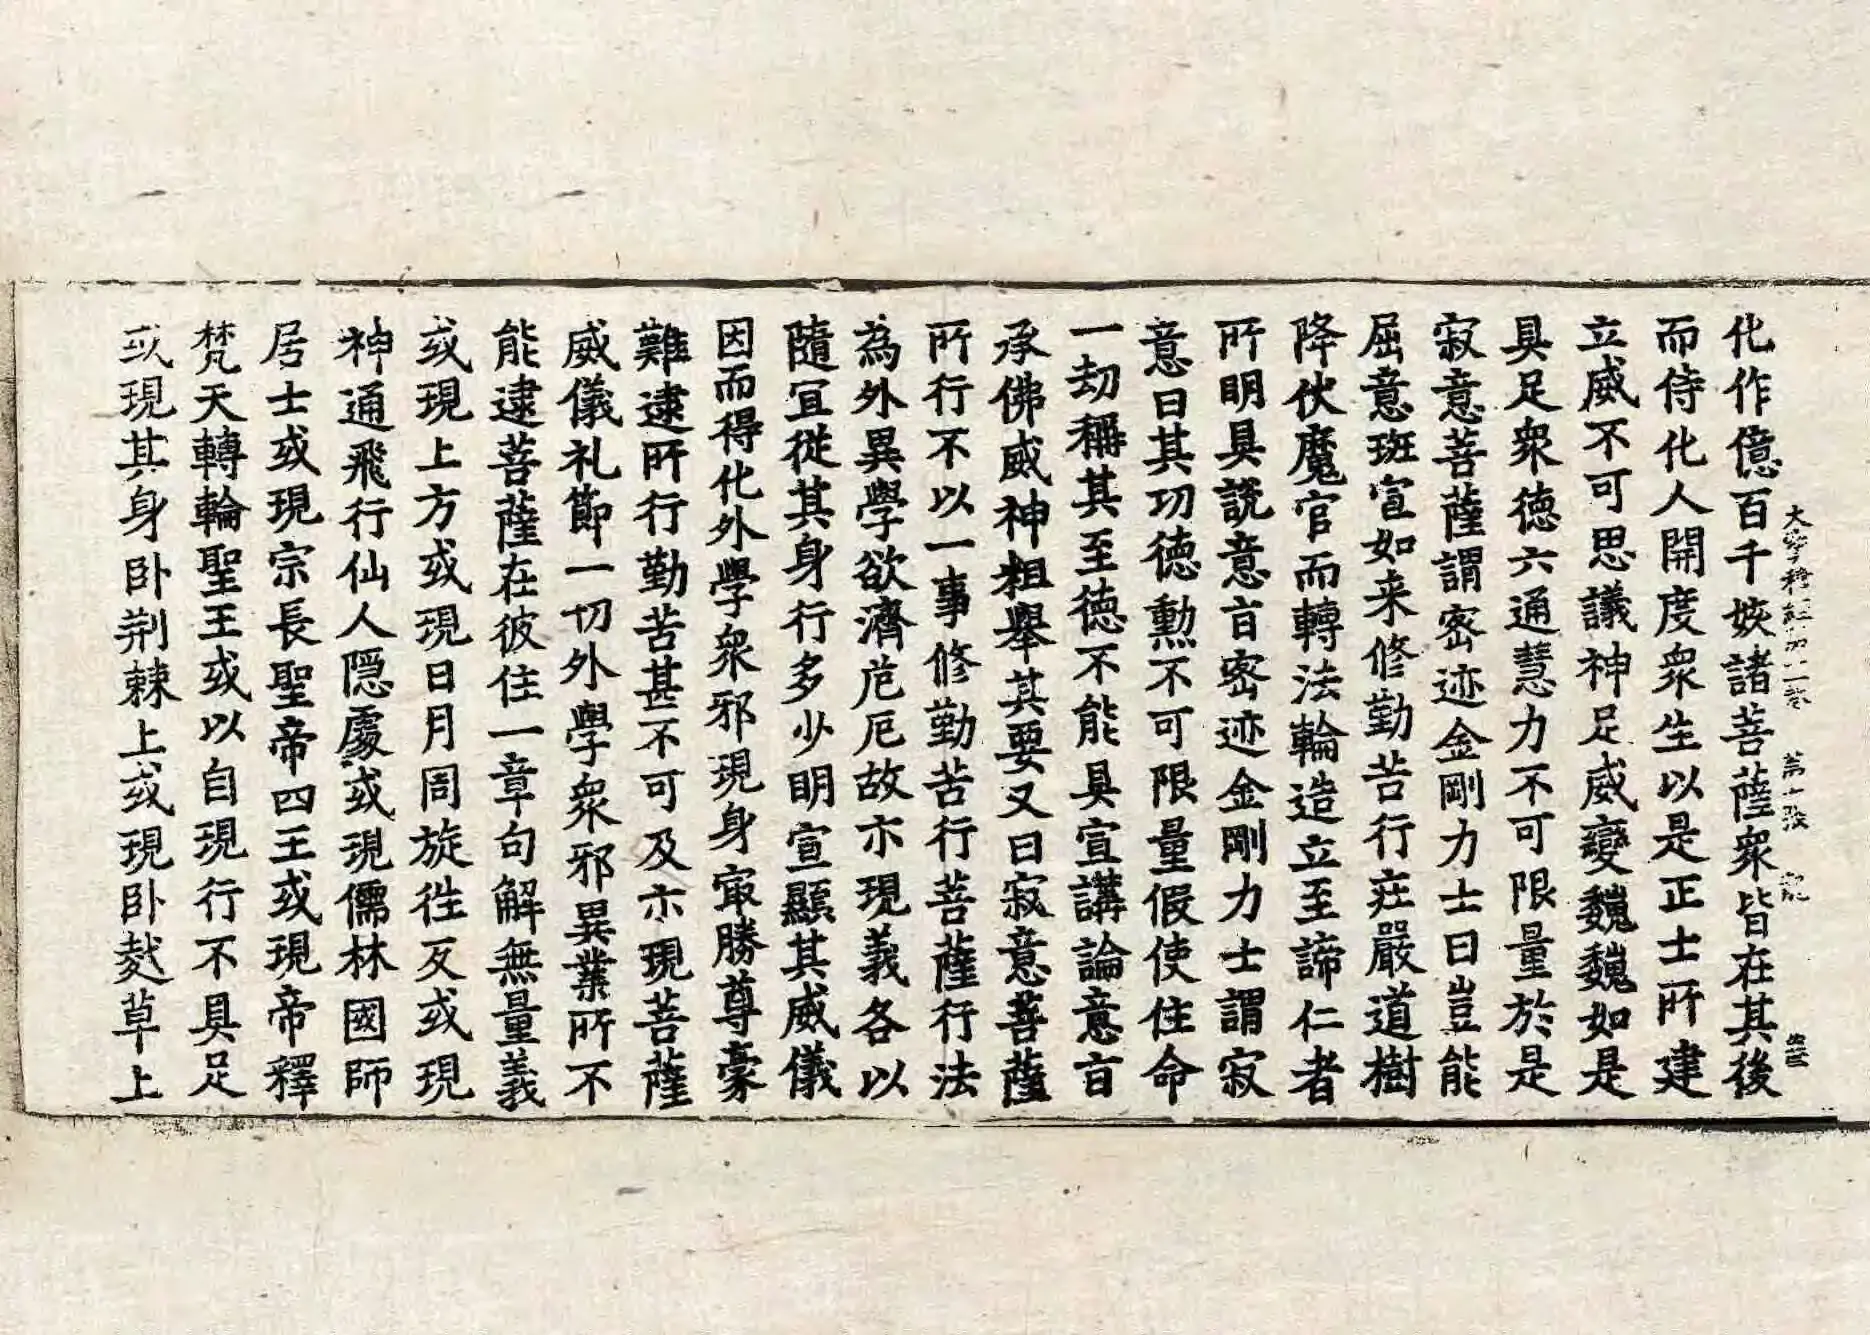 化作億百千姟諸菩薩衆皆在其後
而侍化人開度衆生以是正士所建
立威不可思議神足威變魏魏如是
具足衆徳六通慧力不可限量於是
寂意菩薩謂密迹金剛力士曰豈能
屈意班宣如来修勤苦行荘嚴道樹
降伏魔官而轉法輪造立至諦仁者
所明具說意言密迹金剛力士謂寂
意曰其功徳勲不可限量假使住命
一劫稱其至徳不能具宣講論意言
承佛威神粗舉其要又曰寂意菩薩
所行不以一事修勤苦行菩薩行法
為外異學欲濟危厄故亦現義各以
隨宜從其身行多少明宣顯其威儀
因而得化外學衆邪現身㝡勝尊豪
難逮所行勤苦甚不可及亦現菩薩
威儀礼節一切外學衆邪異業所不
能逮菩薩在彼住一章句解無量義
或現上方或現日月周旋徃反或現
神通飛行仙人隠處或現儒林國師
居士或現宗長聖帝四王或現帝釋
梵天轉輪聖王或以自現行不具足
或現其身卧荆棘上或現卧麨草上